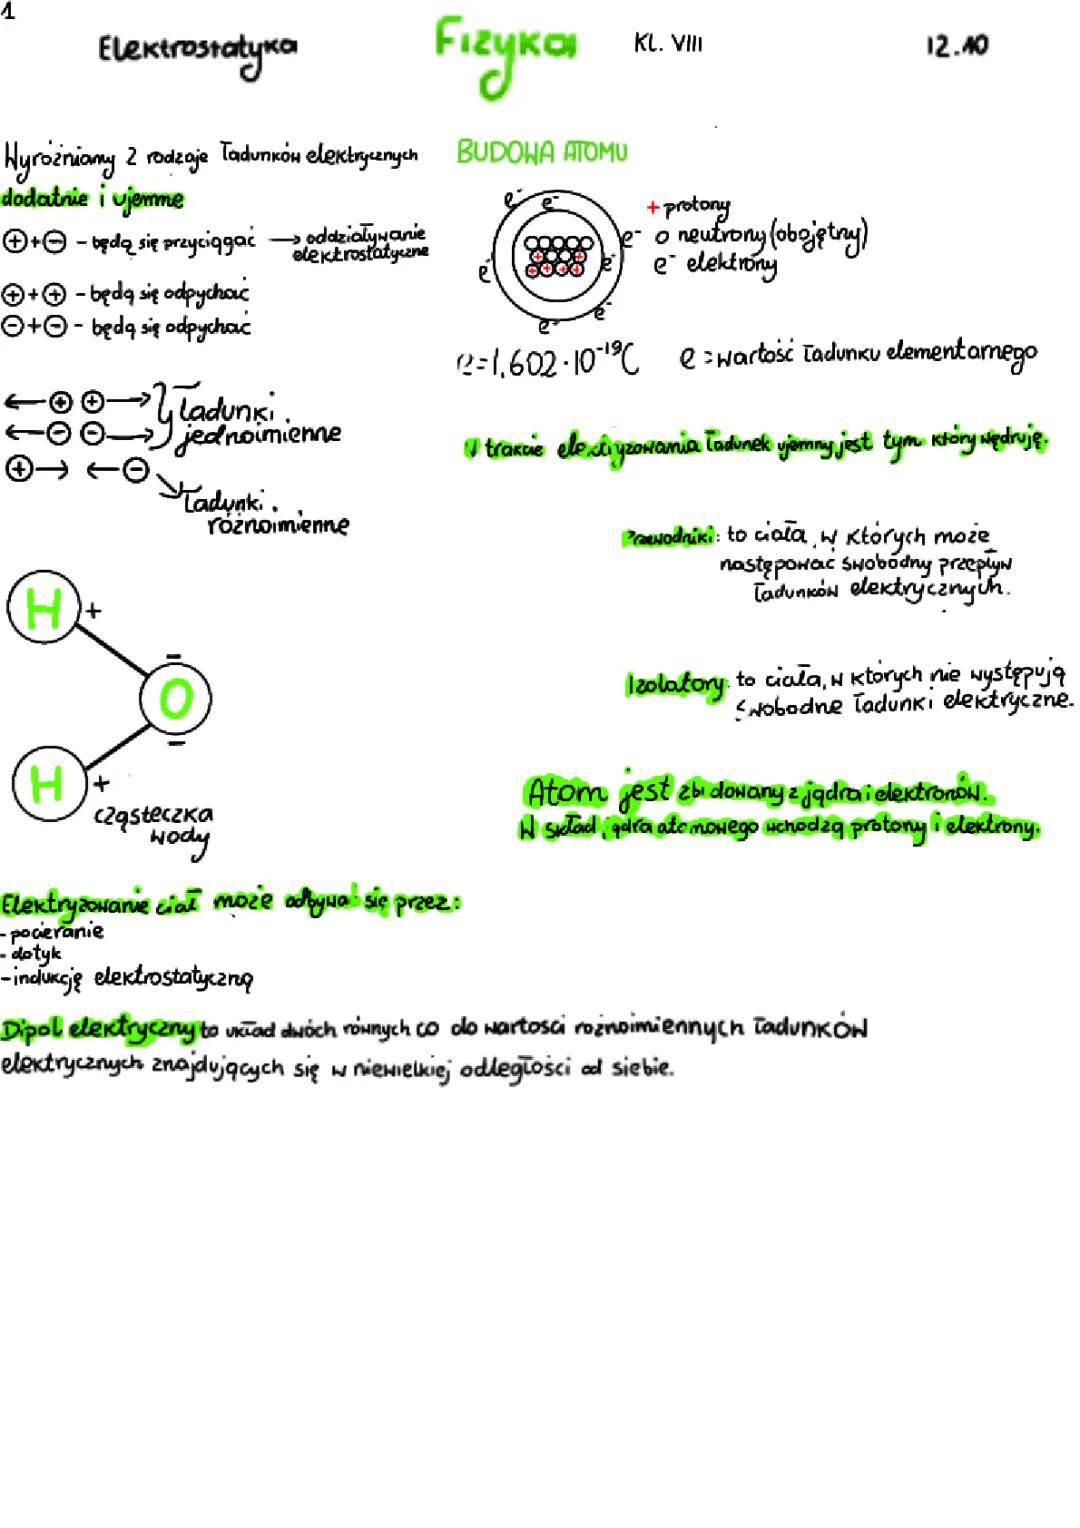 1
Elektrostatyka
Fizyka
KL. VIII
12.10
Wyróżniamy 2 rodzaje ładunków elektrycznych
dodatnie i ujemne
⊕+⊖ - będą się przyciągać → oddziaływanie
elektrostatyczne
⊕+⊕ - będą się odpychać
⊖+⊖ - będą się odpychać
← ⊕ ⊕ → Ładunki
← ⊖ ⊖ → jednoimienne
⊕ → ← ⊖
Ładunki
różnoimienne
H +
−
O
−
H +
cząsteczka
wody
BUDOWA ATOMU
e⁻ e⁻
+ protony
e⁻ o neutrony (obojętny)
e⁻ elektrony
e e
e⁻ e⁻
e=1,602·10⁻¹⁹C e = wartość ładunku elementarnego
W trakcie elektryzowania ładunek ujemny jest tym który wędruję.
Przewodniki: to ciała, w których może
następować swobodny przepływ
ładunków elektrycznych.
Izolatory: to ciała, w których nie występują
swobodne ładunki elektryczne.
Atom jest zbudowany z jądra i elektronów.
W skład jądra atomowego wchodzą protony i elektrony.
Elektryzowanie ciał może odbywać się przez:
- pocieranie
- dotyk
- indukcję elektrostatyczną
Dipol elektryczny to układ dwóch równych co do wartosci roznoimiennych ładunków
elektrycznych znajdujących się w niewielkiej odległości od siebie.